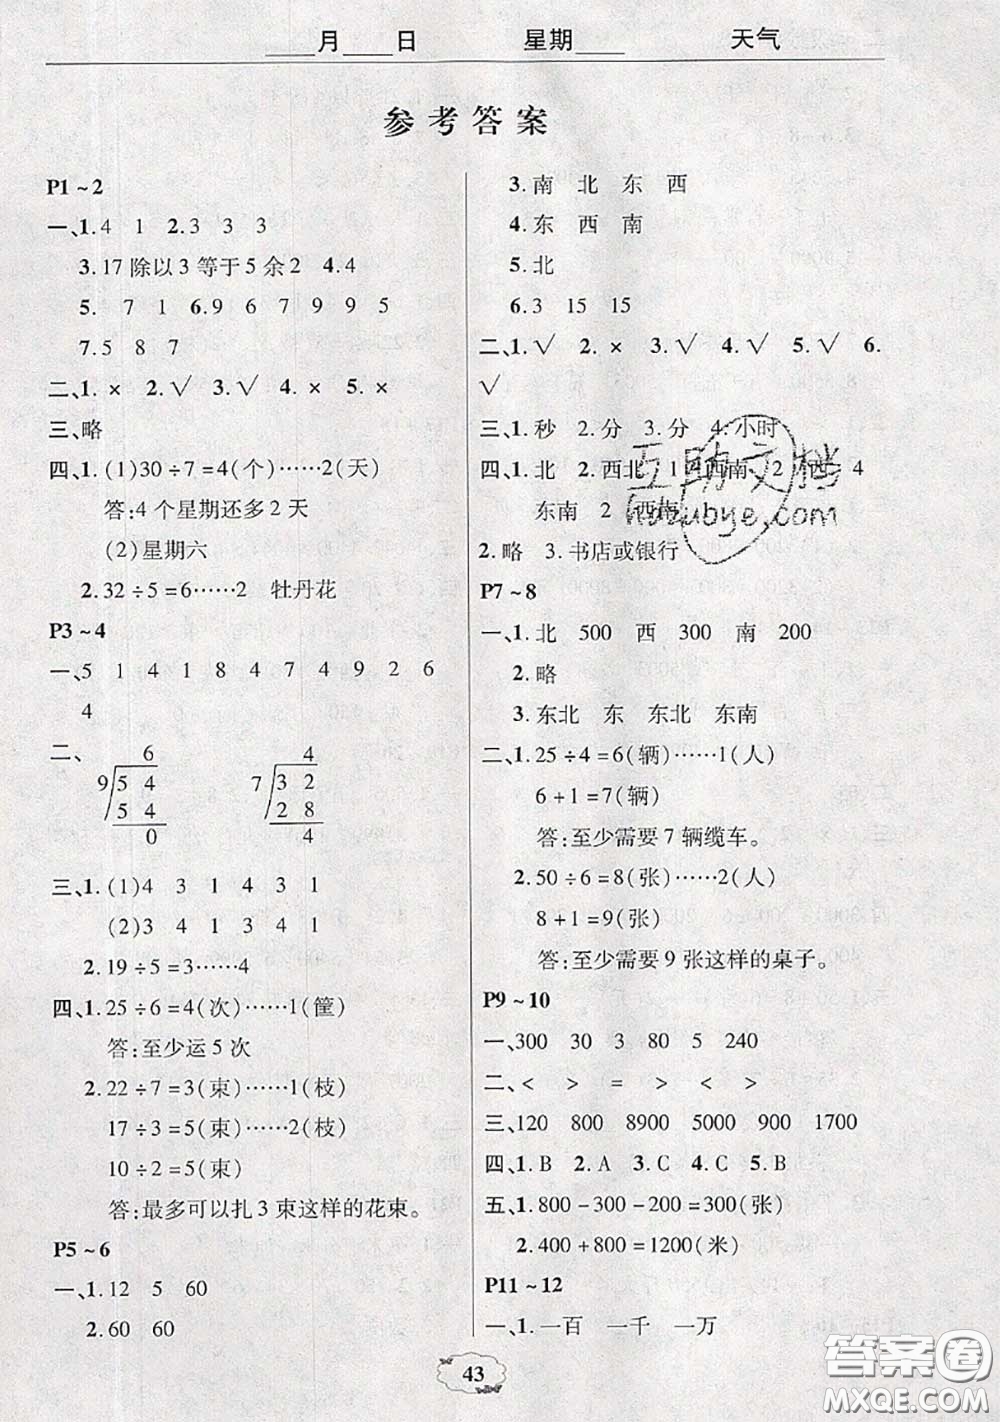 ____月____日 星期____ 天气
参考答案
P1~2
一、1.4 1 2.3 3 3
3.17除以3等于5余2 4.4
5. 7 1 6.9 6 7 9 9 5
7.5 8 7
二、1. × 2.√ 3.√ 4. × 5. ×
三、略
四、1.(1)30÷7=4(个)……2(天)
答:4个星期还多2天
(2)星期六
2.32÷5=6……2 牡丹花
P3~4
一、5 1 4 1 8 4 7 4 9 2 6
4
二、
6
9 5 4
5 4
0
4
7 3 2
2 8
4
三、1.(1)4 3 1 4 3 1
(2)3 4 1 3 4 1
2.19÷5=3……4
四、1.25÷6=4(次)……1(筐)
答:至少运5次
2.22÷7=3(束)……1(枝)
17÷3=5(束)……2(枝)
10÷2=5(束)
答:最多可以扎3束这样的花束。
P5~6
一、1.12 5 60
2.60 60
3.南 北 东 西
4.东 西 南
5.北
6.3 15 15
二、1.√ 2. × 3.√ 4.√ 5.√ 6.
√
三、1.秒 2.分 3.分 4.小时
四、1.北 2.西北 1 西南 2 西 4
东南 2 西南
2.略 3.书店或银行
P7~8
一、1.北 500 西 300 南 200
2.略
3.东北 东 东北 东南
二、1.25÷4=6(辆)……1(人)
6+1=7(辆)
答:至少需要7辆缆车。
2.50÷6=8(张)……2(人)
8+1=9(张)
答:至少需要9张这样的桌子。
P9~10
一、300 30 3 80 5 240
二、< > = > < >
三、120 800 8900 5000 900 1700
四、1.B 2.A 3.C 4.C 5.B
五、1.800-300-200=300(张)
2.400+800=1200(米)
P11~12
一、1.一百 一千 一万
43
互助文档
huzubye.com
答案圈
MXQE.COM